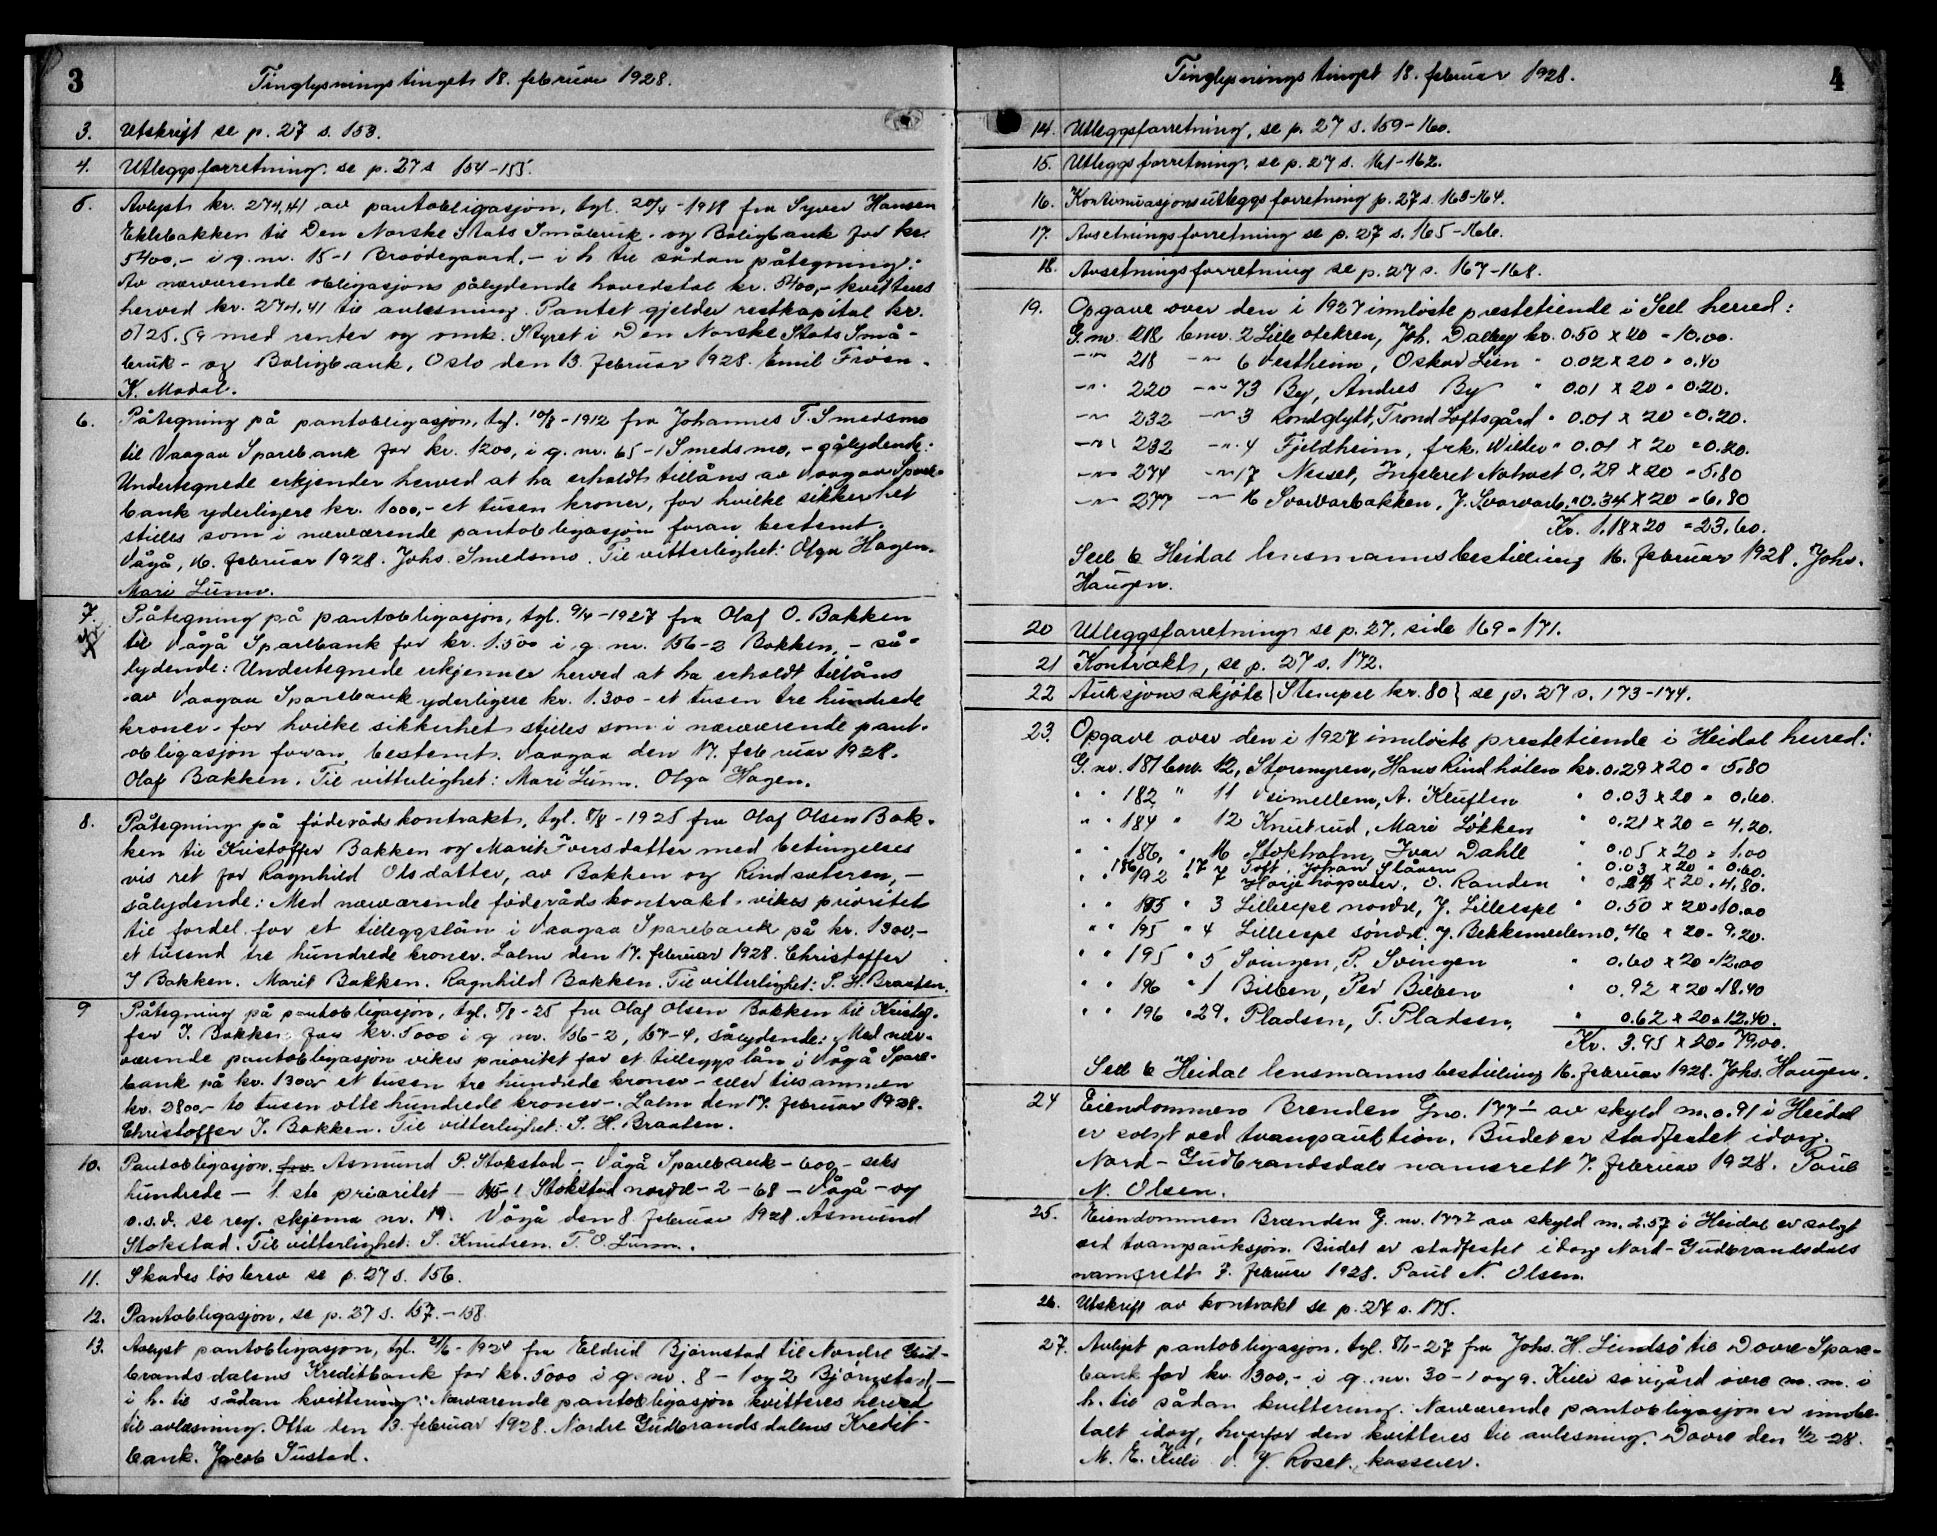 3
Tinglysningstinget 18. februar 1928.
3. Utskrift se p. 27 s. 153.
4. Utleggsforretning, se p. 27 s 154-155.
5. Avlyst kr. 274,41 av pantobligasjon, tgl. 20/4-1918 fra Syver Hansen
Eklebakken til Den Norske Stats Småbruk- og Boligbank for kr.
5400,- i g. nr. 15-1 - i h. til sådan påtegning:
Av nærværende obligasjons pålydende hovedstol kr. 5400,- kvitteres
herved kr. 274,41 til avlesning. Pantet gjelder restkapital kr.
5125.59 med renter og omk. Styret i Den Norske Stats Små-
bruk- og Boligbank, Oslo den 13. februar 1928. Emil Froen.
K. Modal.
6. Påtegning på pantobligasjon, tgl. 10/8-1912 fra Johannes T. Smedsmo
til Vaagaa Sparebank for kr. 1200, i g. nr. 65-1 Smedsmo, - sålydende:
Undertegnede erkjender herved at ha erholdt tillåns av Vaagaa Spare-
bank yderligere kr. 1000,- et tusen kroner, for hvilke sikkerhet
stilles som i nærværende pantobligasjon foran bestemt.
Vågå, 16. februar 1928. Johs. Smedsmo. Til vitterlighet: Olga Hagen.
Mari Lunn.
7. Påtegning på pantobligasjon, tgl. 9/4-1927 fra Olaf O. Bakken
til Vågå Sparebank for kr. 1.500 i g. nr. 156-2 Bakken, - så-
lydende: Undertegnede erkjenner herved at ha erholdt tillåns
av Vaagaa Sparebank yderligere kr. 1.300 - et tusen tre hundrede
kroner - for hvilke sikkerhet stilles som i nærværende pant-
obligasjon foran bestemt. Vaagaa den 17. februar 1928.
Olaf Bakken. Til vitterlighet: Mari Lunn. Olga Hagen.
8. Påtegning på føderådskontrakt, tgl. 8/8-1925 fra Olaf Olsen Bak-
ken til Kristoffer Bakken og Marit Iversdatter med betingelses
vis ret for Ragnhild Olsdatter, av Bakken og Rindsæteren, -
sålydende: Med nærværende føderådskontrakt vikes prioritet
til fordel for et tilleggslån i Vaagaa Sparebank på kr. 1300,-
et tusend tre hundrede kroner. Lalm den 17. februar 1928. Christoffer
I Bakken. Marit Bakken. Ragnhild Bakken. Til vitterlighet: S. H. Braaten.
9 Påtegning på pantobligasjon, tgl. 8/8-25 fra Olaf Olsen Bakken til Kristof-
fer I. Bakken for kr. 5000 i g nr. 156-2, 157-4, sålydende: Med nær-
værende pantobligasjon vikes prioritet for et tilleggslån i Vågå Spare-
bank på kr. 1300,- et tusen tre hundrede kroner - eller tilsammen
kr. 2800,- to tusen otte hundrede kroner -. Lalm den 17. februar 1928.
Christoffer I. Bakken. Til vitterlighet: S. H. Braaten.
10. Pantobligasjon. fra Asmund P. Stokstad - Vågå Sparebank - 600 - seks
hundrede - 1. ste prioritet - 145-1 Stokstad nordre - 2 - 68 - Vågå - og
o.s.v. se reg. skjema nr. 19. Vågå den 8. februar 1928. Asmund
Stokstad. Til vitterlighet: S. Knudsen. T. O. Lunn.
11. Skadesløsbrev se p. 27 s. 156.
12. Pantobligasjon, se p. 27 s. 157.-158.
13. Avlyst pantobligasjon, tgl. 21/6-1924 fra Eldrid Bjørnstad til Nordre Gud-
brandsdalens Kreditbank for kr. 5000 i g. nr. 8-1 og 2 Bjørnstad, -
i h. til sådan kvittering: Nærværende pantobligasjon kvitteres herved
til avlesning. Otta den 13. februar 1928. Nordre Gudbrandsdalens Kredit-
bank. Jacob Sustad.
4
Tinglysningstinget 18. februar 1928.
14. Utleggsforretning, se p. 27 s. 159-160.
15. Utleggsforretning, se p. 27 s. 161-162.
16. Kontinuasjonsutleggsforretning p. 27 s. 163-164.
17. Avsetningsforretning se p. 27 s. 165-166.
18. Avsetningsforretning se p. 27 s. 167-168.
19. Opgave over den i 1927 innløste prestetiende i Sell herred:
G. nr. 218 bnr. 2 Lille Olekren, Joh. Dalby kr. 0.50 x 20 = 10.00.
-"- 218 -"- 6 Vestheim, Oskar Lien " 0.02 x 20 = 0.40
-"- 220 -"- 73 By, Andres By " 0.01 x 20 = 0.20.
-"- 232 -"- 3 Rondglytt, Trond Loftsgård " 0.01 x 20 = 0.20.
-"- 232 -"- 4 Fjeldheim, frk. Wilder " 0.01 x 20 = 0.20.
-"- 274 -"- 17 Nesset, Ingeberet 0,29 x 20 = 5.80
-"- 277 -"- 16 Svarvarbakken, J. Svarvarb. " 0.34 x 20 = 6.80
Kr. 1.18 x 20 = 23.60.
Sell & Heidal lensmannsbestilling 16. februar 1928. Johs.
Haugen.
20 Utleggsforretning se p. 27, side 169-171.
21 Kontrakt, se p. 27 s. 172.
22 Auksjonsskjøte (Stempel kr. 80) se p. 27 s. 173-174.
23. Opgave over den i 1927 innløste prestetiende i Heidal herred:
G. nr. 181 bnr. 12, Storemyren, Hans Rindhølen kr. 0.29 x 20 = 5.80
" " 182 " 11 Veimellem, A. Kluften " 0.03 x 20 = 0.60.
" " 184 " 12 Knutrud, Mari Løkken " 0.21 x 20 = 4.20.
" " 186, " 16 Stokholm, Ivar Dahle " 0.05 x 20 = 1.00
186 17 Toft, Johan Slåen " 0.03 x 20 = 0.60.
" " 192 " 7 O. Randen " 0.24 x 20 = 4.80.
" " 195 " 3 Lilleespe nordre, J. Lilleespe " 0.50 x 20 = 10.00
" " 195 " 4 Lilleespe søndre, J. Bekkemellem 0.46 x 20 = 9.20.
" " 195 " 5 Svingen, P. Svingen " 0.60 x 20 = 12.00
" " 196 " 1 Bilben, Per Bilben " 0.92 x 20 = 18.40
" " 196 " 29. Pladsen, T. Pladsen, " 0.62 x 20 = 12.40.
Kr. 3.95 x 20 = 79.00.
Sell & Heidal lensmannsbestilling 16. februar 1928. Johs. Haugen.
24 Eiendommen Brenden Gno. 177/1 av skyld m. 0.91 i Heidal
er solgt ved tvangsauktion. Budet er stadfestet idag.
Nord-Gudbrandsdals namsrett 7. februar 1928. Paul
N. Olsen.
25. Eiendommen Brænden G. nr. 177/2 av skyld m. 2.57 i Heidal er solgt
ved tvangsauksjon. Budet er stadfestet idag. Nord-Gudbrandsdals
namsrett 7. februar 1928. Paul N. Olsen.
26. Utskrift av kontrakt se p. 27 s. 175.
27. Avlyst pantobligasjon, tgl. 8/1-27 fra Johs. H. Lindsø til Dovre Spare-
bank for kr. 1300,- i g. nr. 30-1 og 9. Kirli sørigård øvre m. m. i
h. til sådan kvittering: Nærværende pantobligasjon er innbe-
talt idag, hvorfor den kvitteres til avlesning. Dovre den 4/2-28.
M. E. Kirli J. Roset, kasserer.